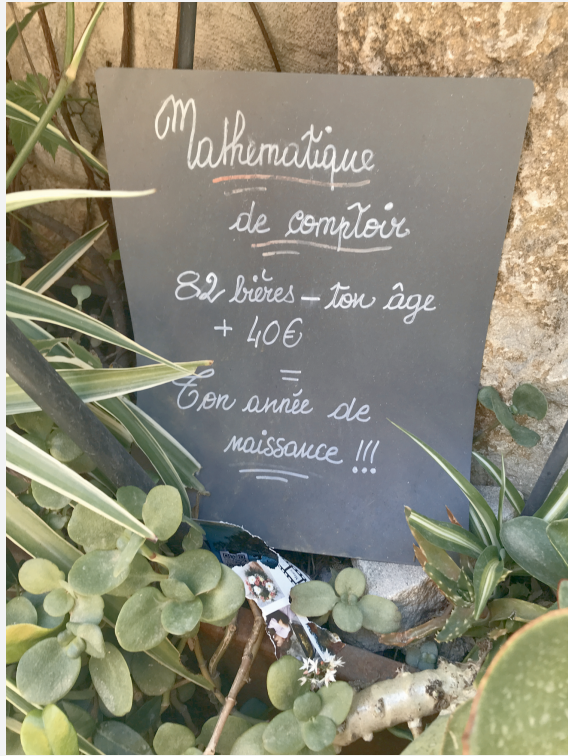 Mathématique
de comptoir
82 bières - ton âge
+ 40€
=
Ton année de
naissance !!!